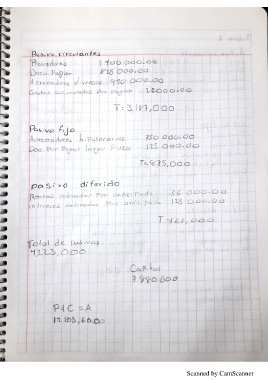 Pasivo circulantes
Proveedores 1 900 000.00
Docu. Pagar 815 000.00
Acreedores diversos 990 000.00
Gastos acumulados por pagar 28000.00
T=3,187,000
Pasivo fijo
Acreedores hipotecarios 750 000.00
Doc Por Pagar largo Plazo 125 000.00
T=875,000
pasivo diferido
Rentas cobradas Por anticipado 36 000.00
intereses cobrados Por anticipado 125 000.00
T=161,000
Total de pasivos
4223,000
Capital
7 880 600
P+C=A
12 103,60.00
Scanned by CamScanner